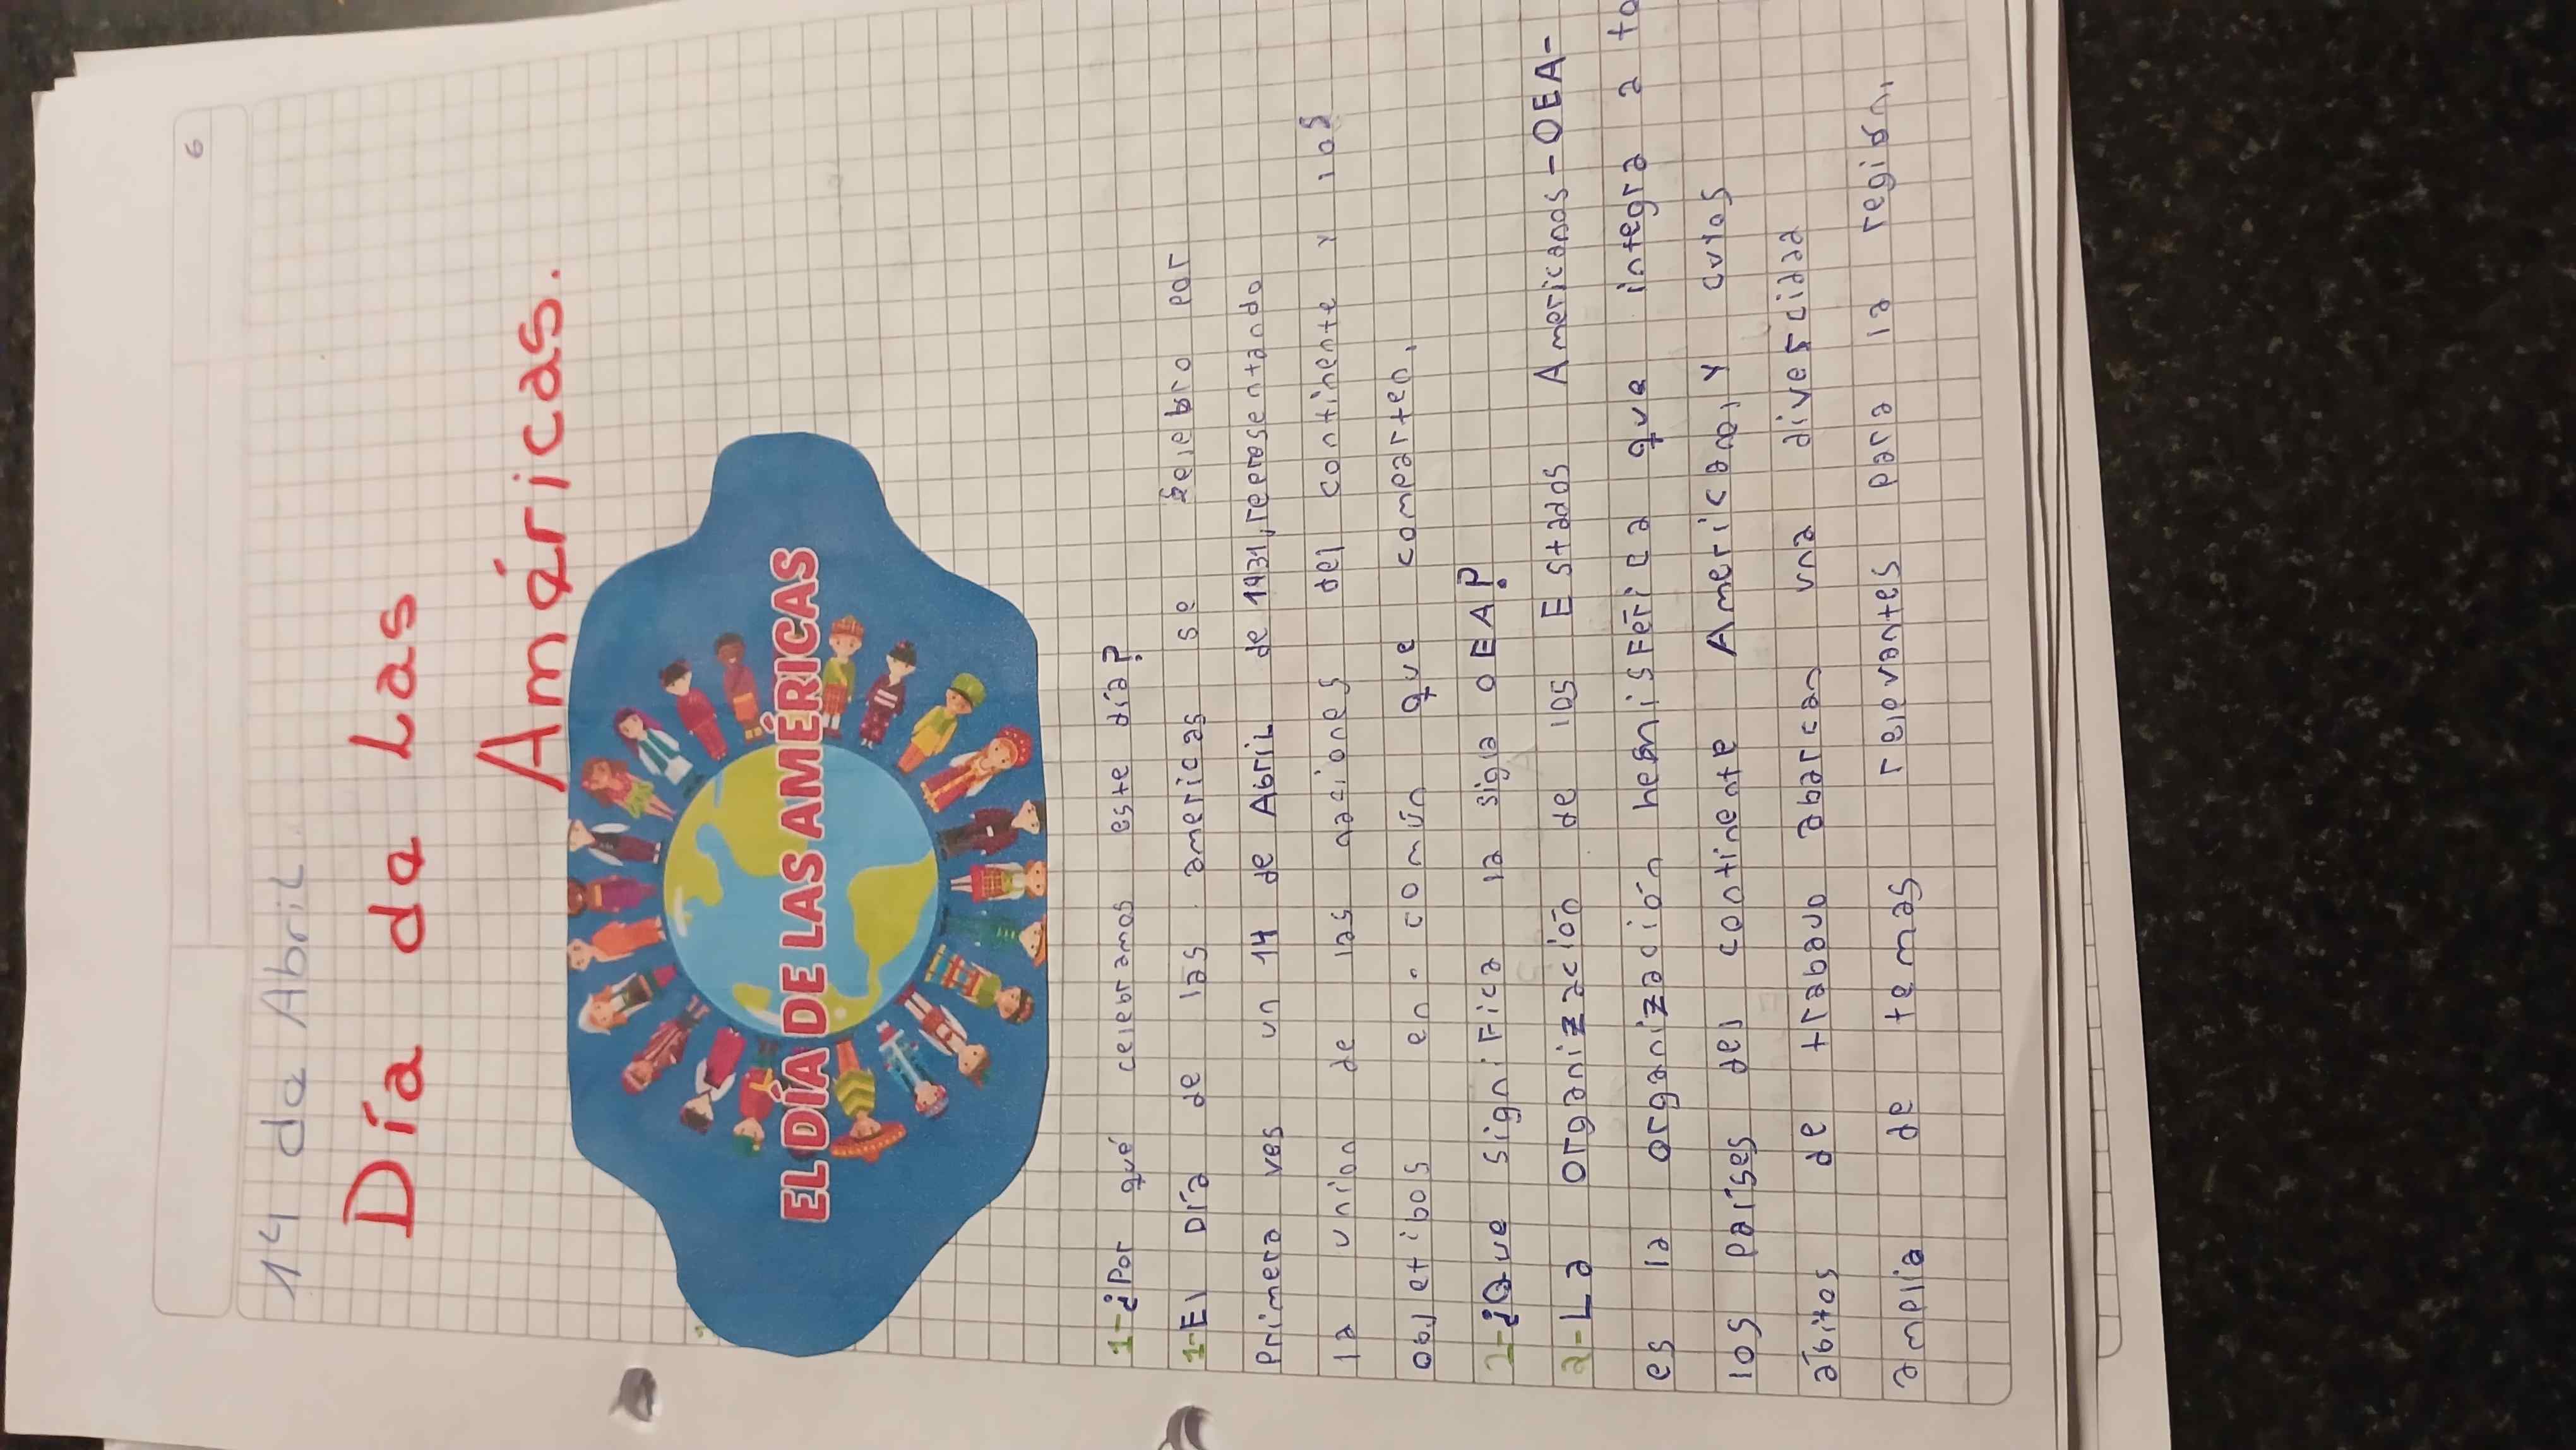 6
14 de Abril.
Día de Las
Américas.
EL DÍA DE LAS AMÉRICAS
1-¿Por qué celebramos este día?
1-El Día de las americas se selebro por
Primera ves un 14 de Abril de 1931, representando
la unión de las naciones del continente y los
objetibos en común que comparten.
2-¿Que significa la siga OEA?
2-La organización de los Estados Americanos-OEA-
es la organización hemisférica que integra a to
los países del continente Americano, y cuios
abitos de trabajo abarcan una diversidad
amplia de temas relevantes para la región.